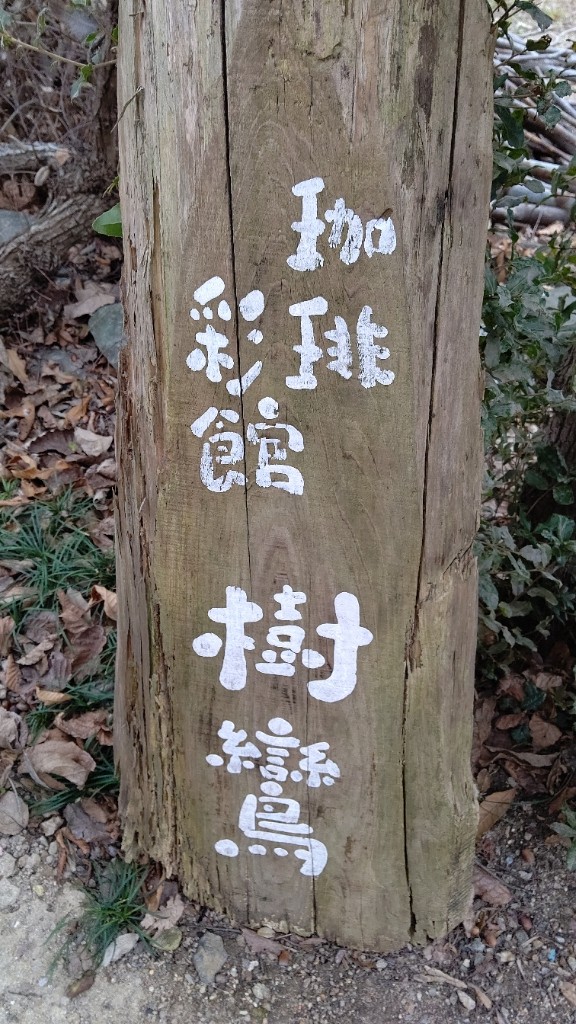 珈琲
彩館
樹鸞